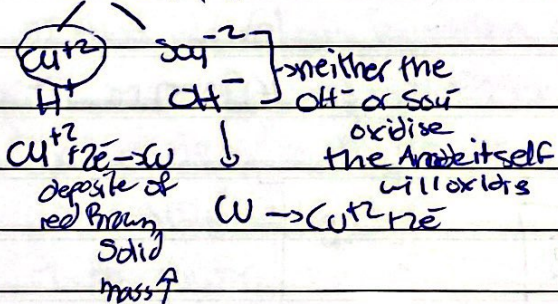 Cu+2 SO4-2
H+ OH-
→neither the
OH- or SO4-
oxidise
the Anode itself
will oxidis
Cu+2 +2e- → Cu
deposite of
red Brown
Solid
mass↑
Cu → Cu+2 +2e-